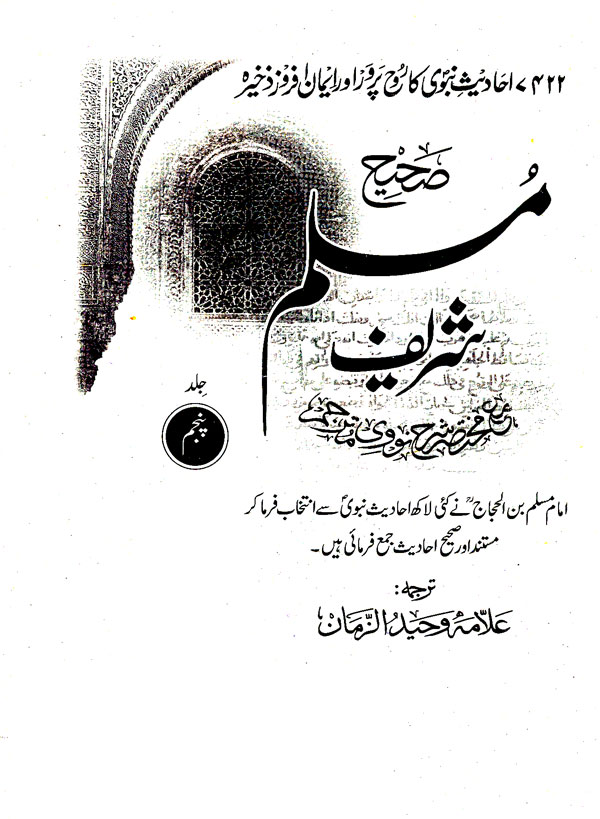 ۷۴۲۲ احادیثِ نبوی کا رُوح پَروَر اور ایمان افروز ذخیرہ
صَحیح
مُسلم
شریف
مختصر شرح نووی مترجم
جلد
پنجم
امام مسلم بن الحجاجؒ نے کئی لاکھ احادیث نبویؐ سے انتخاب فرما کر
مستند اور صحیح احادیث جمع فرمائی ہیں۔
ترجمہ:
علاّمہ وحیدُ الزّمان